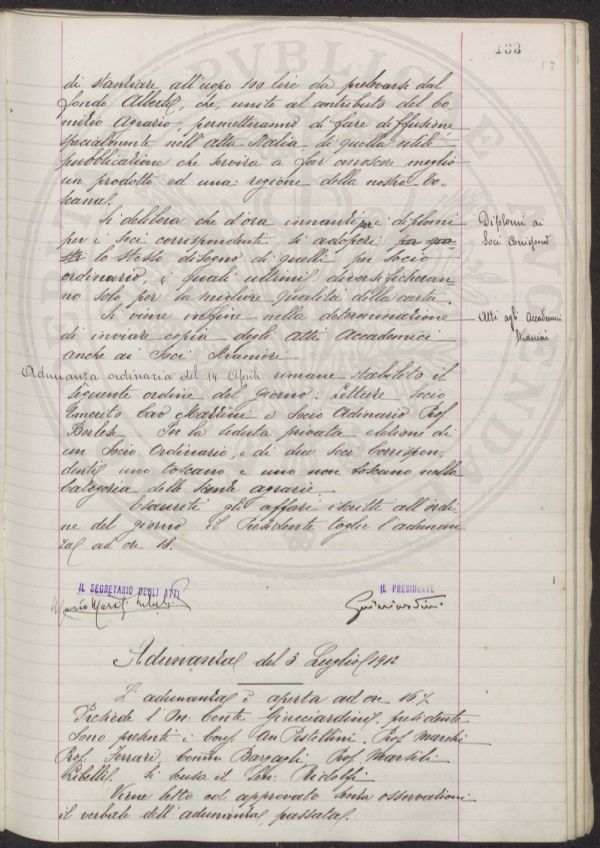 133
di stanziare all'uopo 100 lire da prelevarsi dal
fondo Alberti, che, unite al contributo del Co-
mizio Agrario, permetteranno di fare diffusione
specialmente nell'alta Italia, di quella utile
pubblicazione che servirà a far conoscere meglio
un prodotto ed una regione della nostra To-
scana.
Si delibera che d'ora innanzi per i diplomi
per i Soci corrispondenti si adoperi
lo stesso disegno di quelli per Socio
ordinario, i quali ultimi diversificheran
no solo per la migliore qualità della carta.
Diplomi ai
Soci Corrispond
Si viene infine nella determinazione
di inviare copia degli Atti Accademici
anche ai Soci Stranieri.
Atti agli Accademici
Stranieri
Adunanza ordinaria del 14 Aprile rimane stabilito il
seguente ordine del giorno: Letture Socio
Emerito Cav Martini e Socio Ordinario Prof
Berlese. Per la seduta privata elezione di
un Socio Ordinario, e di due Soci Corrispon-
denti uno toscano e uno non toscano nella
Categoria delle Scienze agrarie.
Esauriti gli affari iscritti all'ordi-
ne del giorno il Presidente toglie l'adunan
za ad ore 18.
IL SEGRETARIO DEGLI ATTI
IL PRESIDENTE
Guicciardini
Adunanza del 3 Luglio 1912
L'adunanza è aperta ad ore 16 ½
Presiede l'On. Conte Guicciardini, presidente
Sono presenti i Conf. Avv Pestellini, Prof. Marchi
Prof. Ferrari Comm Bargagli, Prof. Marsili
Libelli. Si scusa il Ridolfi.
Viene letto ed approvato senza osservazioni
il verbale dell'adunanza passata.